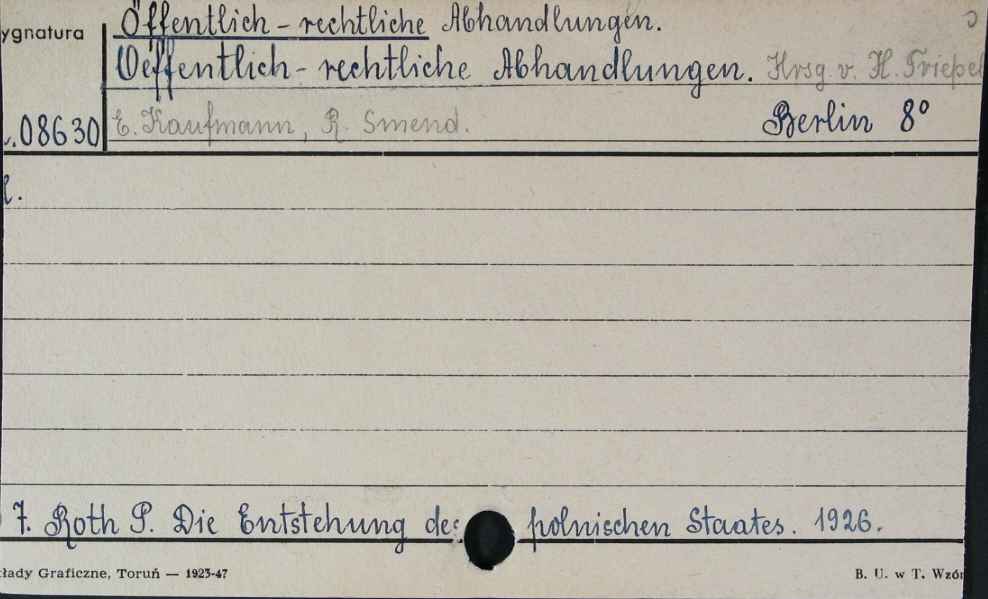 Öffentlich-rechtliche Abhandlungen.
ygnatura
Oeffentlich-rechtliche Abhandlungen. Hrsg. v. H. Triepel
08630 E. Kaufmann, R. Smend. Berlin 8°
7. Roth P. Die Entstehung des polnischen Staates. 1926.
łady Graficzne, Toruń — 1923-47 B. U. w T. Wzór